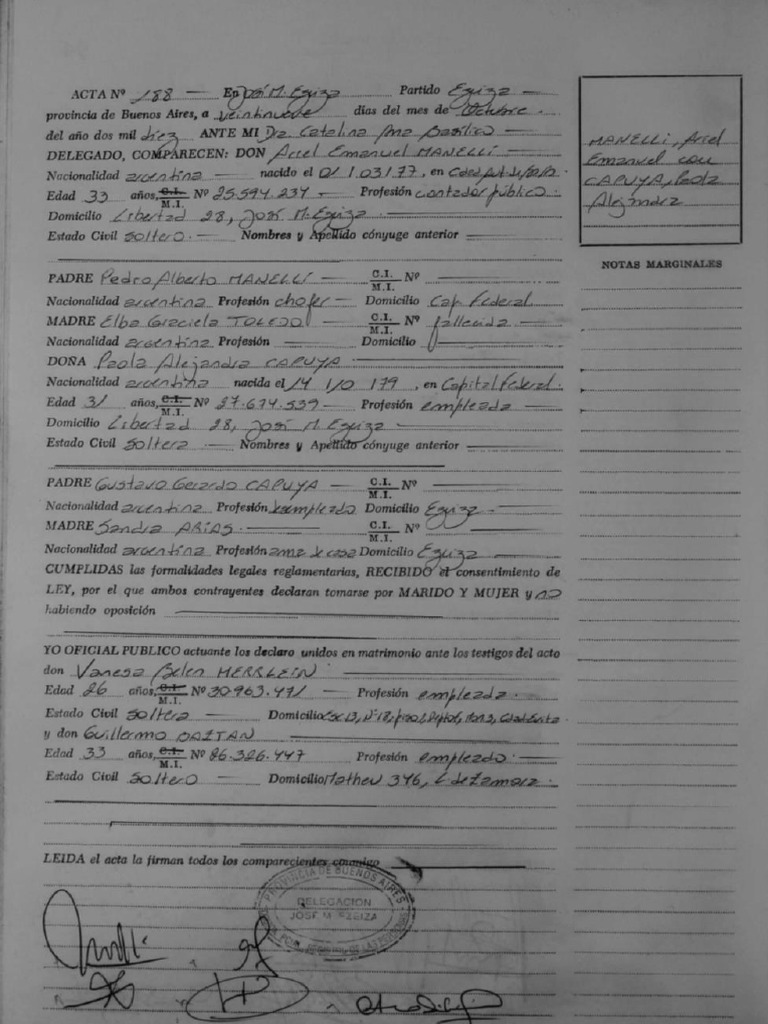 ACTA Nº 188 En José M. Ezeiza Partido Ezeiza
provincia de Buenos Aires, a veintinueve días del mes de Octubre
del año dos mil diez ANTE MI Dra Catalina Ana Basilico
DELEGADO, COMPARECEN: DON Ariel Emanuel MANELLI
Nacionalidad argentina nacido el 01/03/77, en
Edad 33 años, C.I. M.I. Nº 25.594.237 Profesión contador público
Domicilio Libertad 28, José M. Ezeiza
Estado Civil Soltero Nombres y Apellido cónyuge anterior
PADRE Pedro Alberto MANELLI C.I. M.I. Nº
Nacionalidad argentina Profesión chofer Domicilio Cap Federal
MADRE Elba Graciela TOLEDO C.I. M.I. Nº fallecida
Nacionalidad argentina Profesión Domicilio
DOÑA Paola Alejandra CAPUYA
Nacionalidad argentina nacida el 14/10/79, en Capital Federal
Edad 31 años, C.I. M.I. Nº 27.674.539 Profesión empleada
Domicilio Libertad 28, José M. Ezeiza
Estado Civil Soltera Nombres y Apellido cónyuge anterior
PADRE Gustavo Gerardo CAPUYA C.I. M.I. Nº
Nacionalidad argentina Profesión desempleado Domicilio Ezeiza
MADRE Sandra ARIAS C.I. M.I. Nº
Nacionalidad argentina Profesión ama de casa Domicilio Ezeiza
CUMPLIDAS las formalidades legales reglamentarias, RECIBIDO el consentimiento de
LEY, por el que ambos contrayentes declaran tomarse por MARIDO Y MUJER y no
habiendo oposición
YO OFICIAL PUBLICO actuante los declaro unidos en matrimonio ante los testigos del acto
don Vanesa Belen HERRLEIN
Edad 26 años, C.I. M.I. Nº 30.963.471 Profesión empleada
Estado Civil Soltera Domicilio
y don Guillermo BAZTAN
Edad 33 años, C.I. M.I. Nº 26.326.447 Profesión empleado
Estado Civil Soltero Domicilio Matheu 346, L. de Zamora
LEIDA el acta la firman todos los comparecientes conmigo
PROVINCIA DE BUENOS AIRES
DELEGACION
JOSE M. EZEIZA
MANELLI, Ariel
Emanuel con
CAPUYA, Paola
Alejandra
NOTAS MARGINALES